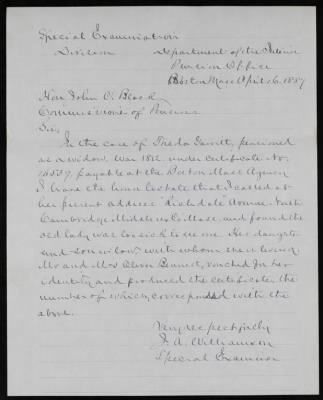 Special Examination
Division Department of the Interior
Pension Office
Boston Mass April 6. 1887
Hon John C. Black
Commissioner of Pensions
Sir,
In the case of Jarrett, pensioned
as a widow, War 1812 under Certificate No.
payable at the Boston Mass Agency
I have the honor to state that I called at
her present address Avenue North
Cambridge Middlesex Co Mass. and found the
old lady was too sick to see me. Her daughter
and son in law, with whom she is living
Mr and Mrs Oliver Bennett, vouched for her
identity and produced the certificate the
number of which corresponded with the
above.
Very respectfully
J. A. Williamson
Special Examiner